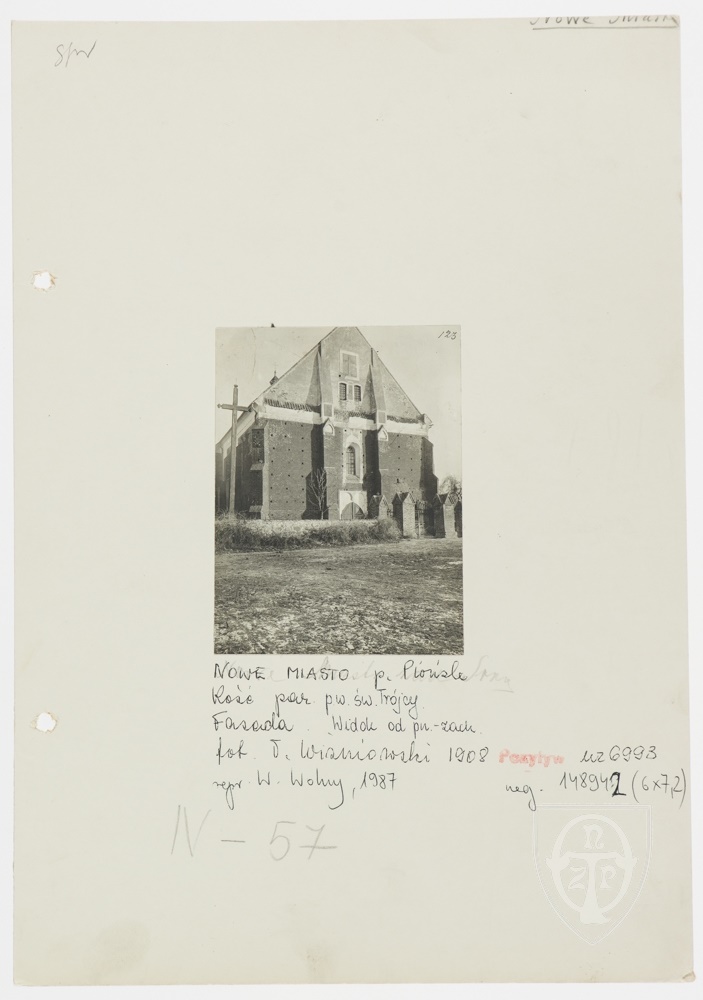 Nowe Miasto
spr
123
NOWE MIASTO p. Płońsk
Kość par. pw. św. Trójcy.
Fasada. Widok od pn.-zach.
fot. T. Wiśniowski 1908 Pozytyw nr 6993
repr. W. Wolny, 1987 neg. 148942 (6x7,2)
N - 57
n z p